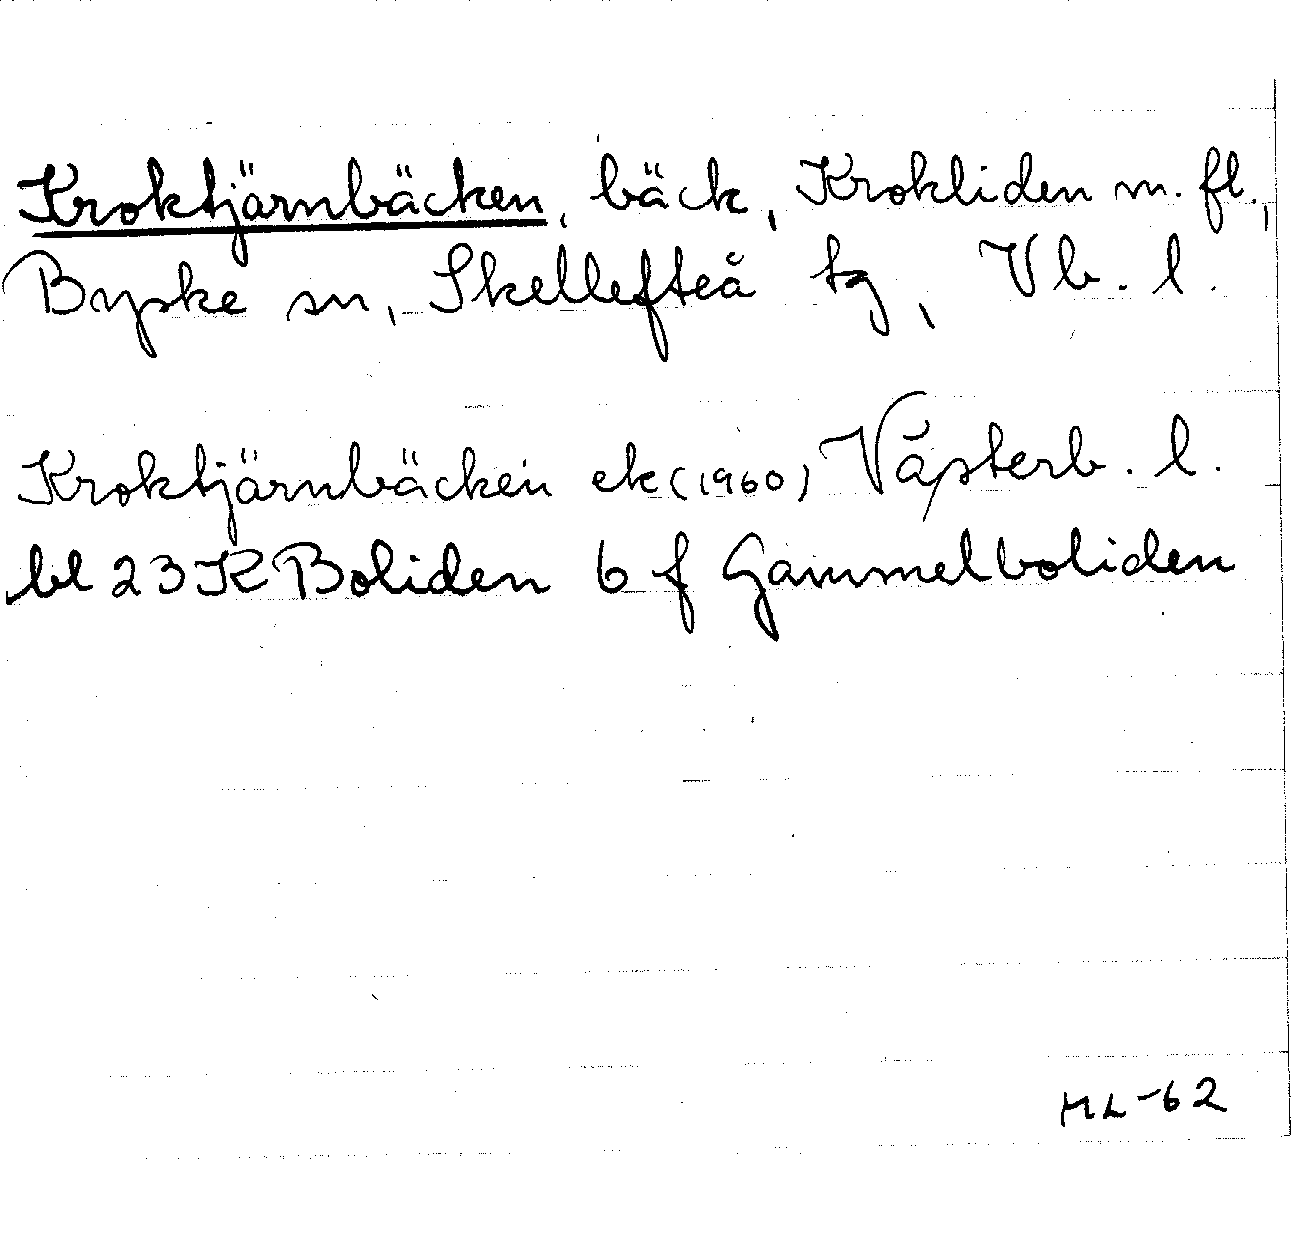 Kroktjärnbäcken, bäck, Krokliden m. fl.,
Byske sn, Skellefteå tg, Vb. l.
Kroktjärnbäcken ek (1960) Västerb. l.
bl 23 K Boliden 6 f Gammelboliden
ML-62